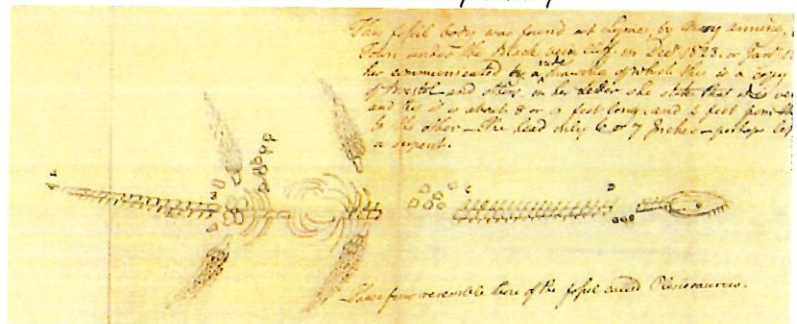 This fossil body was found at Lyme, by Mary Anning,
Town under the Black ven Cliff. in Decr 1823. or Jany
her communicated by a rude drawing of which this is a copy
of Bristol and others. in her letter she states that
and it is about 8 or 9 feet long. and 5 feet from the
to the other _ the head only 6 or 7 Inches _ perhaps
a serpent.
C
D
resemble those of the fossil called Plesiosaurus.